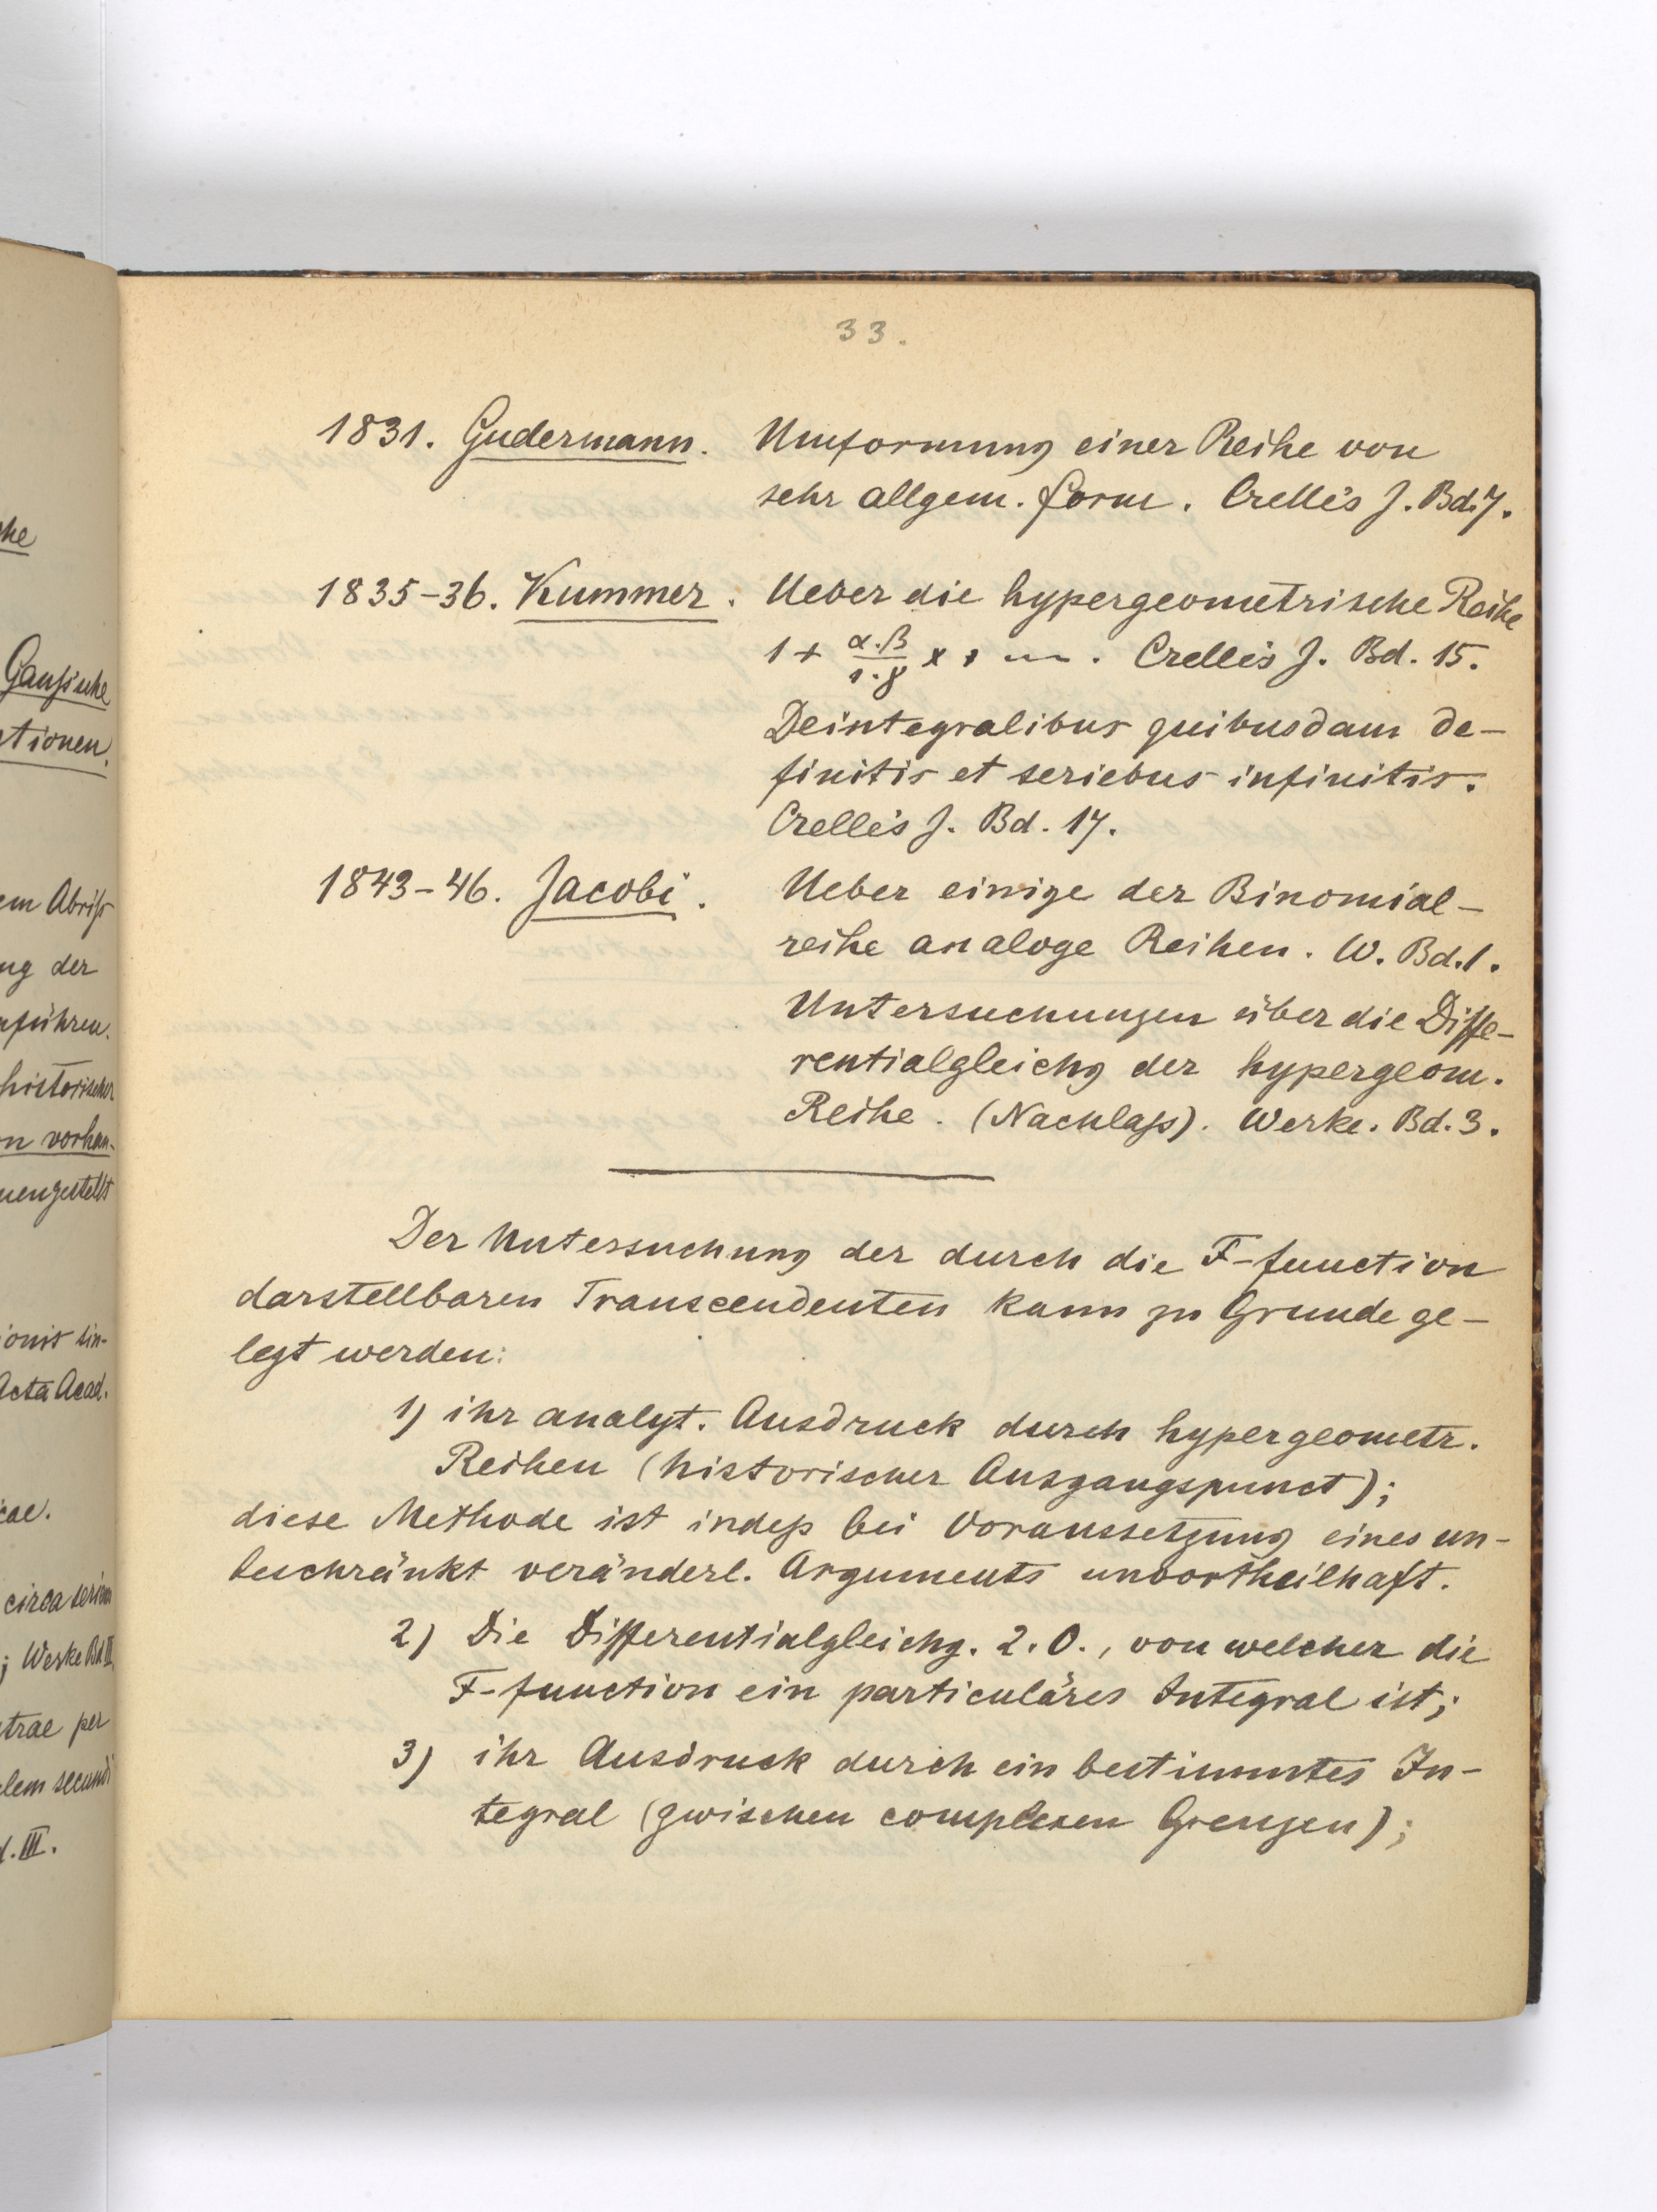 33.
1831. Gudermann. Umformung einer Reihe von
sehr allgem. Form. Crelle's J. Bd. 7.
1835-36. Kummer. Ueber die hypergeometrische Reihe
1 + α.β/1.γ x + .... Crelle's J. Bd. 15.
De integralibus quibusdam de-
finitis et seriebus infinitis.
Crelle's J. Bd. 17.
1843-46. Jacobi. Ueber einige der Binomial-
reihe analoge Reihen. W. Bd. 1.
Untersuchungen über die Diffe-
rentialgleichg der hypergeom.
Reihe. (Nachlaß). Werke. Bd. 3.
Der Untersuchung der durch die F-function
darstellbaren Transcendenten kann zu Grunde ge-
legt werden:
1) ihr analyt. Ausdruck durch hypergeometr.
Reihen (historischer Ausgangspunct);
diese Methode ist indeß bei Voraussetzung eines un-
beschränkt veränderl. Arguments unvortheilhaft.
2) Die Differentialgleichg. 2. O., von welcher die
F-function ein particuläres Integral ist;
3) ihr Ausdruck durch ein bestimmtes In-
tegral (zwischen complexen Grenzen);
Gaußsche
em Abriß
ng der
historischer
n vorhan-
Acta Acad.
circa seriem
; Werke Bd III
trae per
d. III.